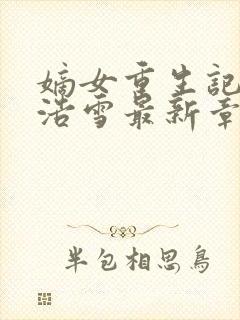 嫡女重生記
浩雪最新章
半包相思鳥